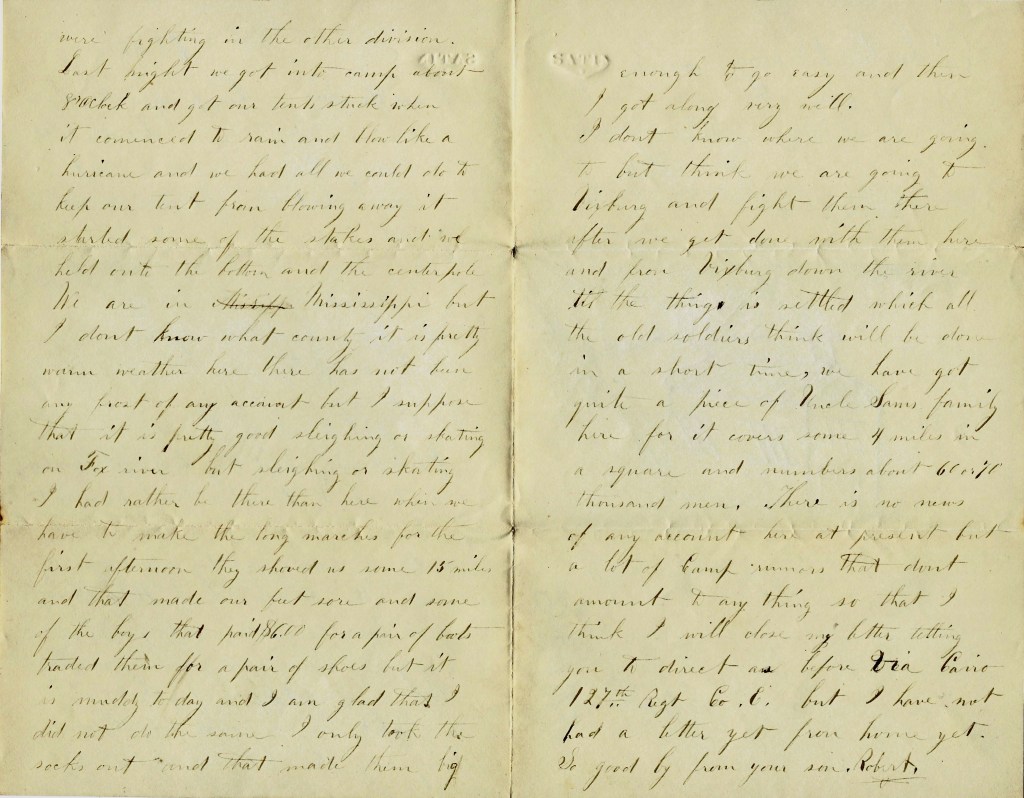 were fighting in the other division.
Last night we got into camp about
8 oClock and got our tents stuck when
it comenced to rain and blow like a
huricane and we had all we could do to
keep our tent from blowing away it
started some of the stakes and we
held onto the bottom and the centerpole
We are in Mississippi but
I dont know what county it is pretty
warm weather here there has not been
any frost of any account but I suppose
that it is pretty good sleighing or skating
on Fox river but sleighing or skating
I had rather be there than here when we
have to make the long marches for the
first afternoon they shoved us some 15 miles
and that made our feet sore and some
of the boys that paid $6.00 for a pair of boots
traded them for a pair of shoes but it
is muddy to day and I am glad that I
did not do the same I only took the
socks out and that made them big
SATI
enough to go easy and then
I got along very well.
I dont know where we are going
to but think we are going to
Vixburg and fight them there
after we get done with them here
and from Vixburg down the river
'til the thing is settled which all
the old soldiers think will be done
in a short time, we have got
quite a piece of Uncle Sams family
here for it covers some 4 miles in
a square and numbers about 60 or 70
thousand men. There is no news
of any account here at present but
a lot of Camp rumors that dont
amount to any thing so that I
think I will close my letter telling
you to direct as before Via Cairo
127th Regt Co. C. but I have not
had a letter yet from home yet.
So good by from your son Robert.